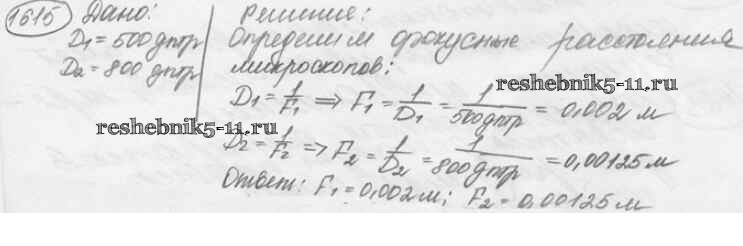 1615 Дано: Решение:
D₁ = 500 дптр Определим фокусные расстояния
D₂ = 800 дптр микроскопов:
reshebnik5-11.ru
D₁ = 1/F₁ ⇒ F₁ = 1/D₁ = 1/500 дптр = 0,002 м
reshebnik5-11.ru
D₂ = 1/F₂ ⇒ F₂ = 1/D₂ = 1/800 дптр = 0,00125 м
Ответ: F₁ = 0,002 м; F₂ = 0,00125 м